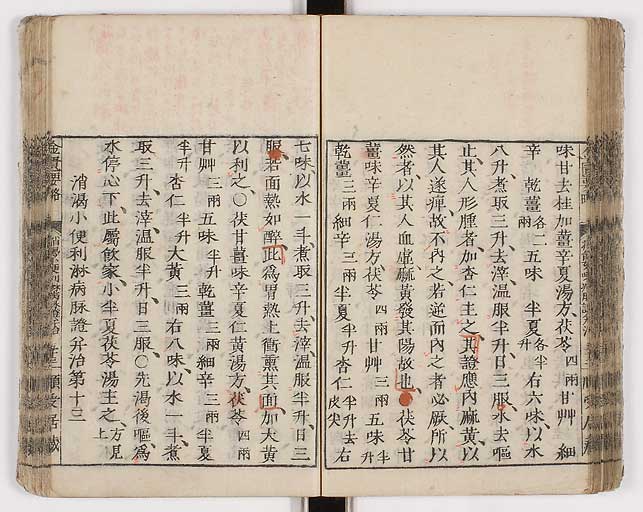 味甘去桂加薑辛夏湯方茯苓四兩甘艸細
辛乾薑各二兩五味半夏各半升右六味以水
八升煮取三升去滓溫服半升日三服水去嘔
止其人形腫者加杏仁主之其證應內麻黃以
其人遂痺故不內之若逆而內之者必厥所以
然者以其人血虛麻黃發其陽故也茯苓甘
薑味辛夏仁湯方茯苓四兩甘艸三兩五味半升
乾薑三兩細辛三兩半夏半升杏仁半升去皮尖右
七味以水一斗煮取三升去滓溫服半升日三
服若面熱如醉此為胃熱上衝熏其面加大黃
以利之〇茯甘薑味辛夏仁黃湯方茯苓四兩
甘艸三兩五味半升乾薑三兩細辛三兩半夏
半升杏仁半升大黃三兩右八味以水一斗煮
取三升去滓溫服半升日三服〇先渴後嘔為
水停心下此屬飲家小半夏茯苓湯主之方見上
消渴小便利淋病脉證并治第十三
金匱要略